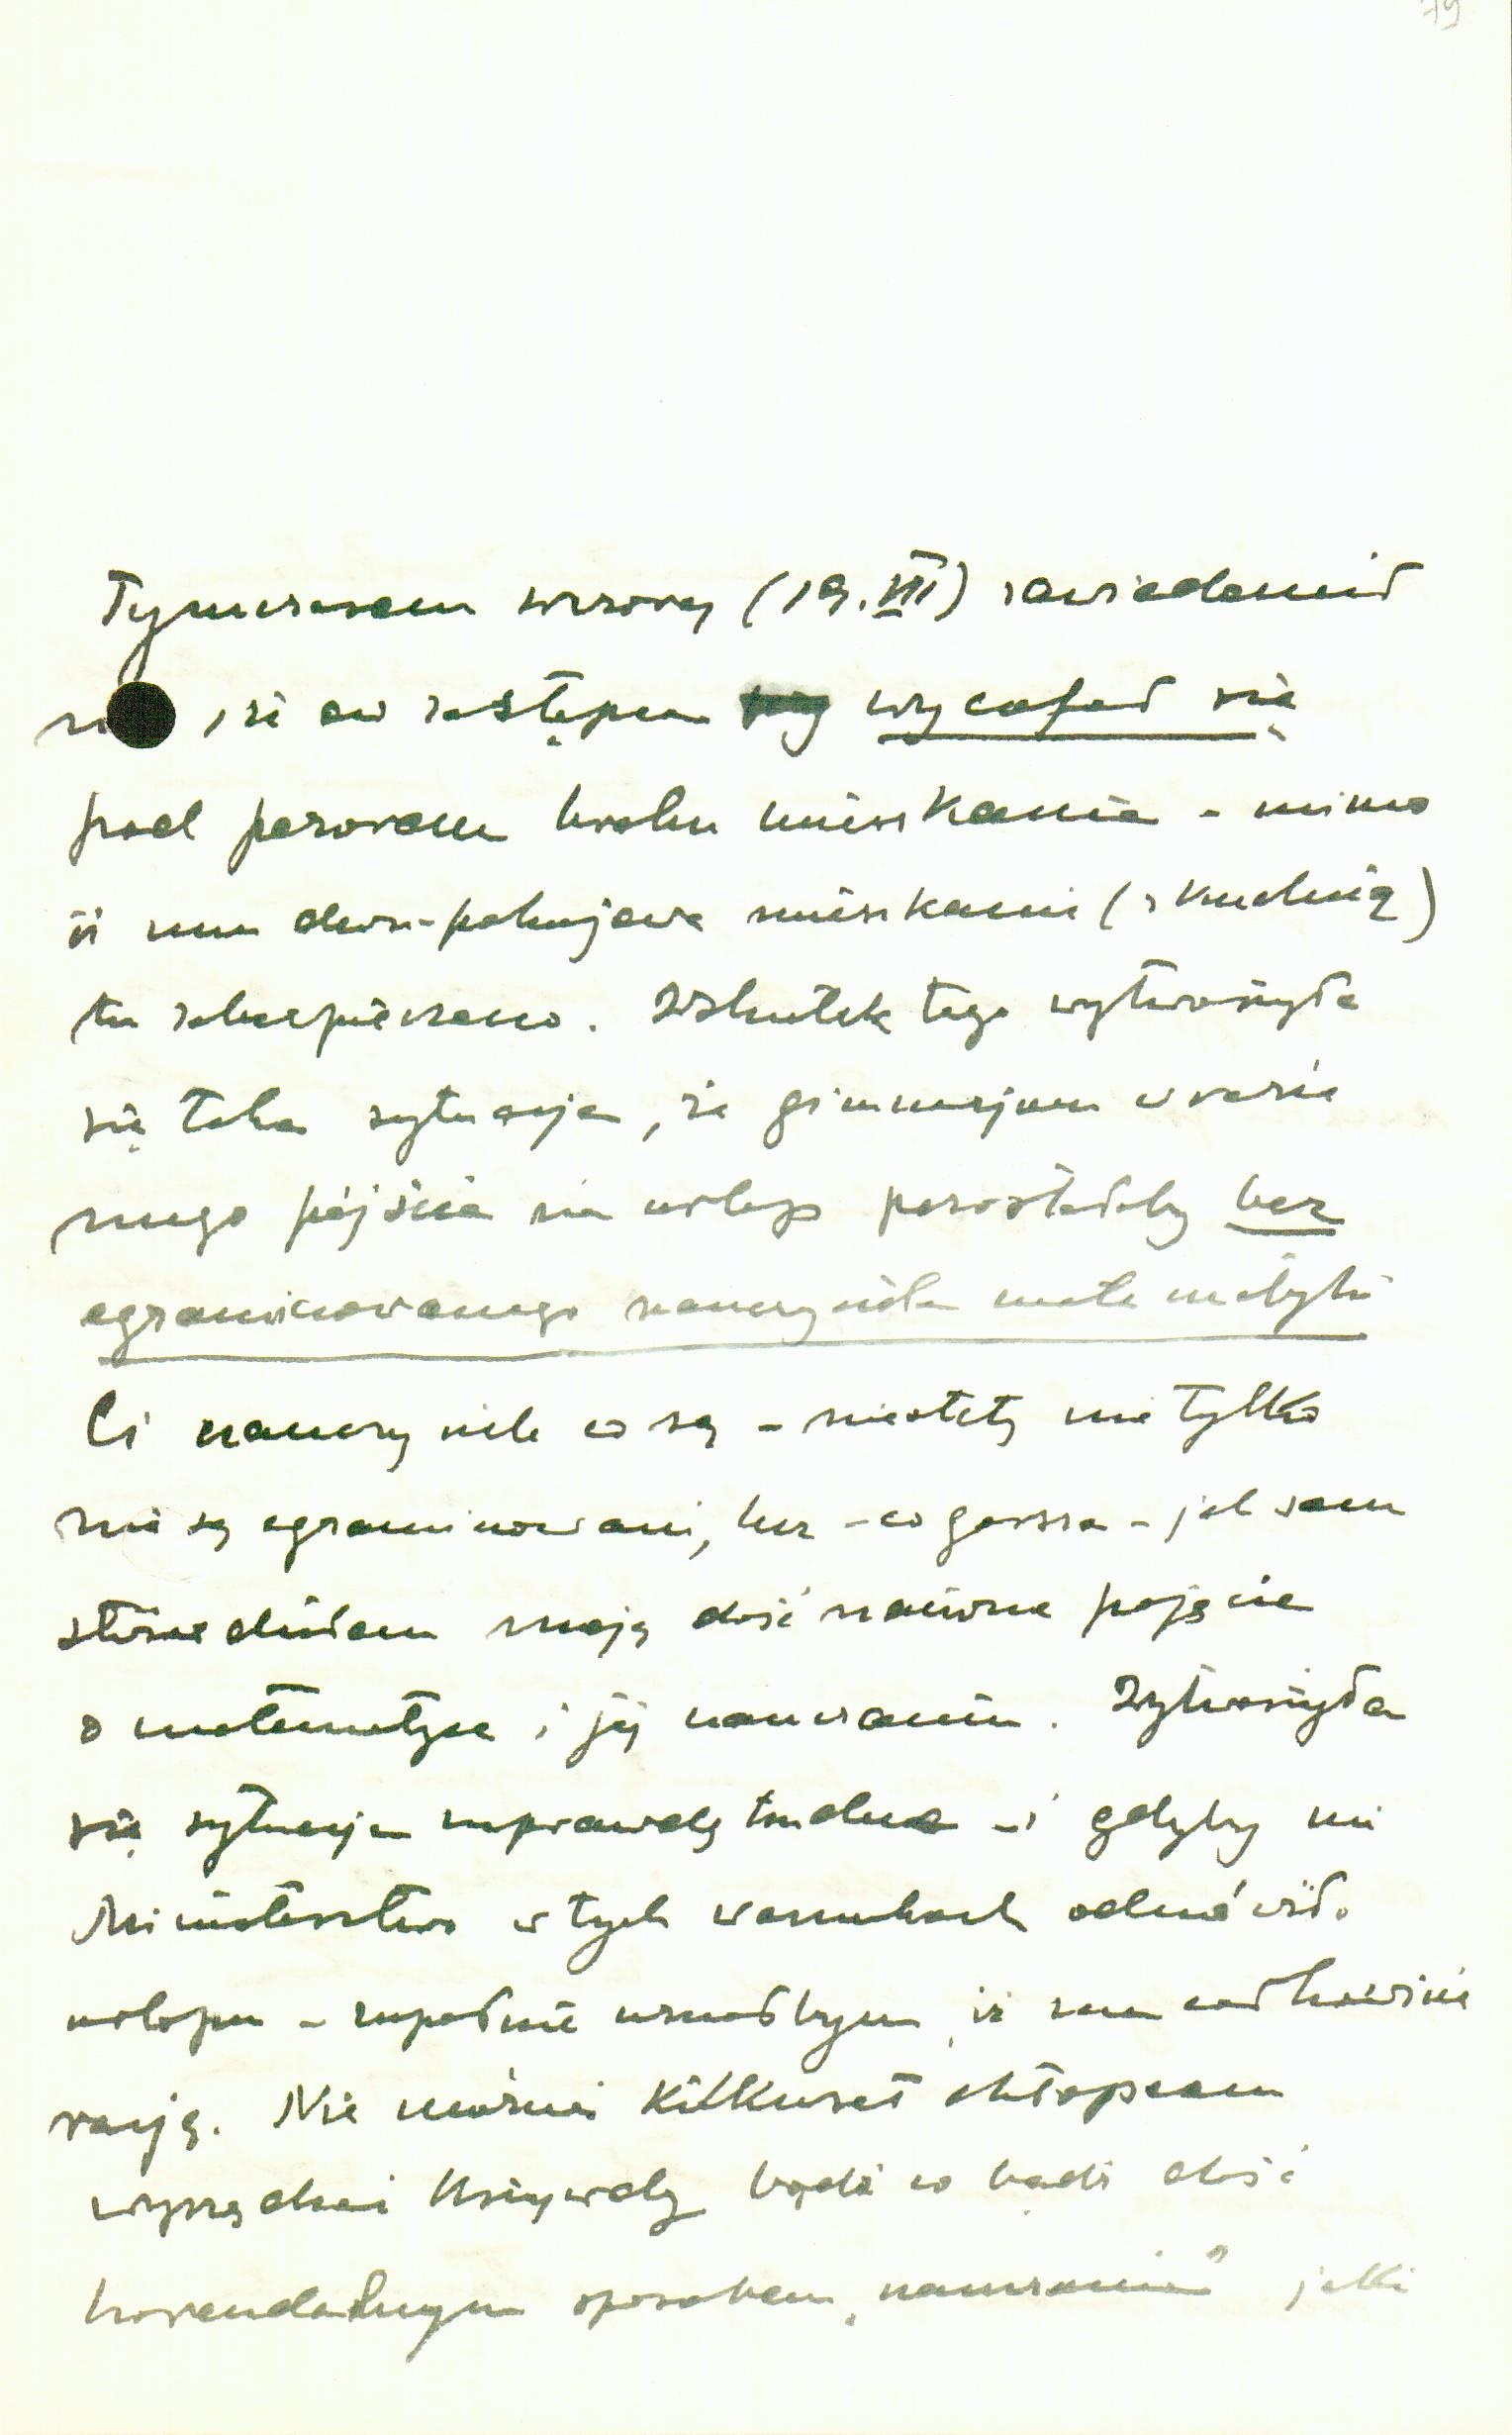 79
Tymczasem wczoraj (19.VIII) zawiadomił
, że ów zastępca wycofał się
pod pozorem braku mieszkania - mimo
iż mu dwu-pokojowe mieszkanie (z kuchnią)
tu zabezpieczono. Wskutek tego wytworzyła
się taka sytuacja, że gimnazjum w razie
mego pójścia na urlop pozostałoby bez
egzaminowanego nauczyciela matematyki
Ci nauczyciele co są - niestety nie tylko
nie są egzaminowani, lecz - co gorsza - jak sam
stwierdziłem mają dość naiwne pojęcie
o matematyce i jej nauczaniu. Wytworzyła
się sytuacja naprawdę trudna - i gdyby mi
Ministerstwo w tych warunkach odmówiło
urlopu - zupełnie uznałbym, iż ma całkowicie
rację. Nie można kilkuset chłopcom
wyrządzać krzywdy bądź co bądź dość
horendalnym sposobem „nauczania" jakki